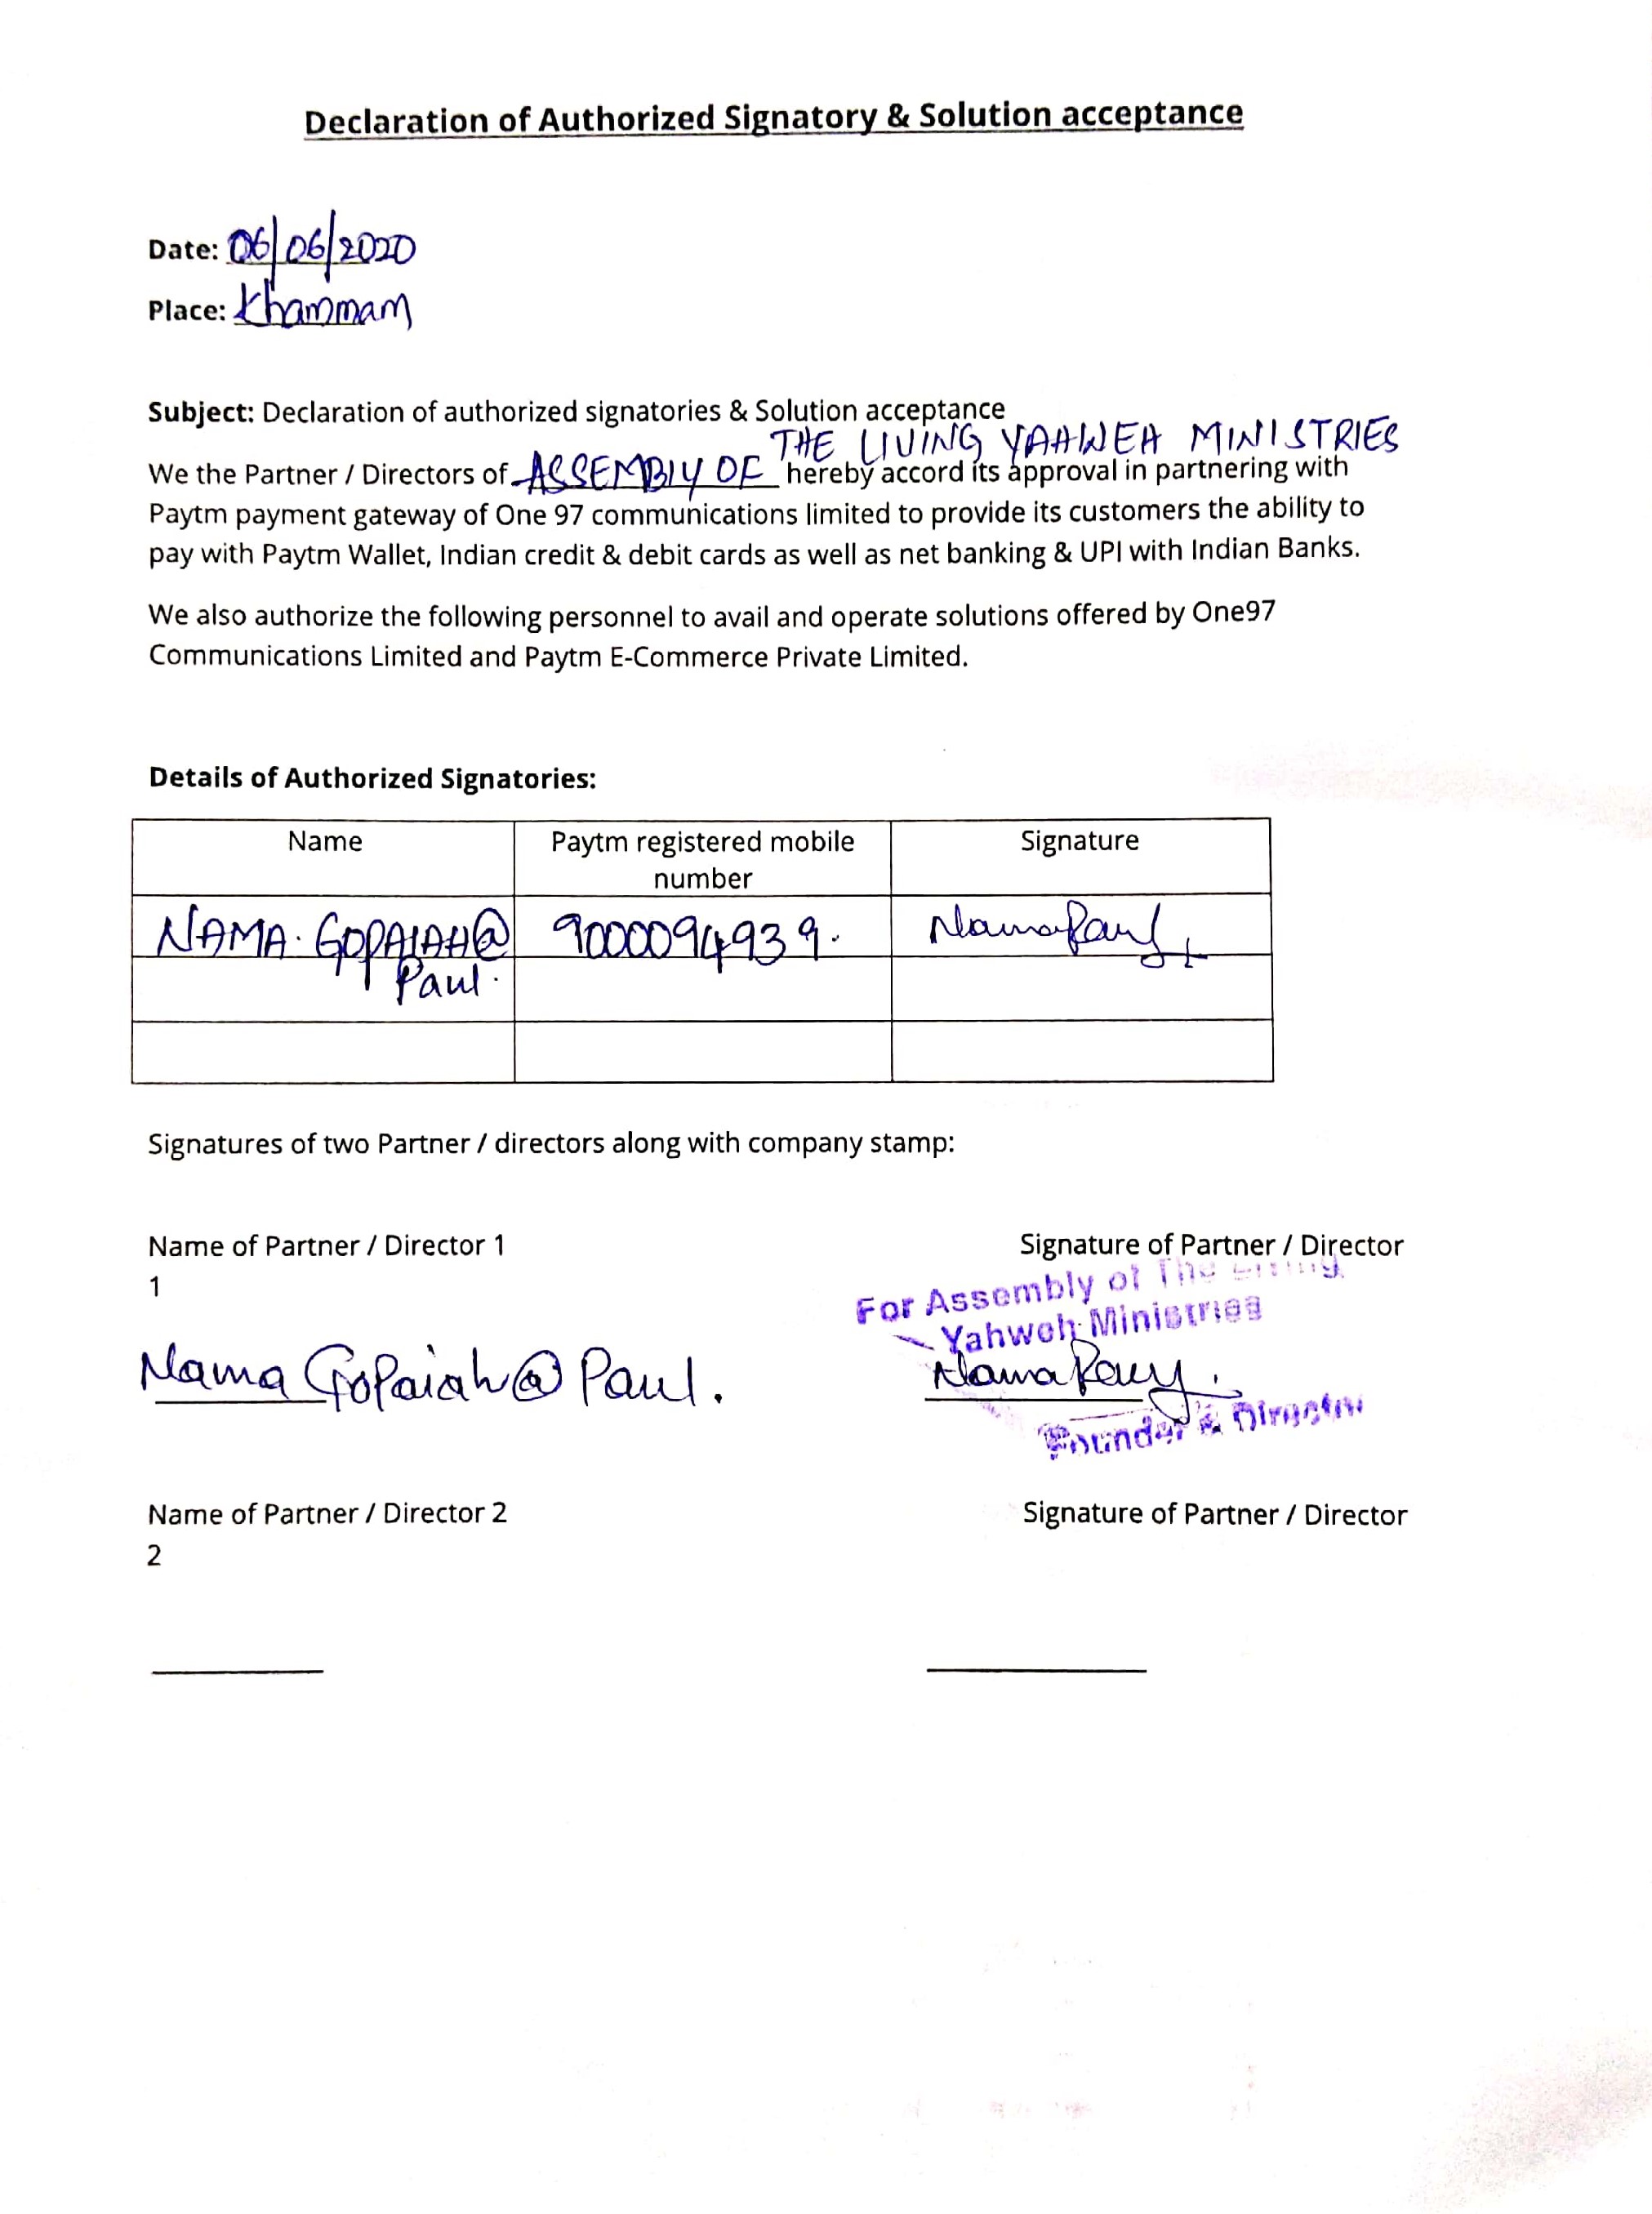 Declaration of Authorized Signatory & Solution acceptance
Date: 06/06/2020
Place: Khammam
Subject: Declaration of authorized signatories & Solution acceptance
THE LIVING YAHWEH MINISTRIES
We the Partner / Directors of ASSEMBLY OF hereby accord its approval in partnering with
Paytm payment gateway of One 97 communications limited to provide its customers the ability to
pay with Paytm Wallet, Indian credit & debit cards as well as net banking & UPI with Indian Banks.
We also authorize the following personnel to avail and operate solutions offered by One97
Communications Limited and Paytm E-Commerce Private Limited.
Details of Authorized Signatories:
Name Paytm registered mobile number Signature
NAMA. GOPAIAH@ 9000094939. Nama Paul
Paul.
Signatures of two Partner / directors along with company stamp:
Name of Partner / Director 1 Signature of Partner / Director
1
For Assembly of The Living
Yahweh Ministries
Nama Gopaiah@ Paul. Nama Paul.
Founder & Director
Name of Partner / Director 2 Signature of Partner / Director
2